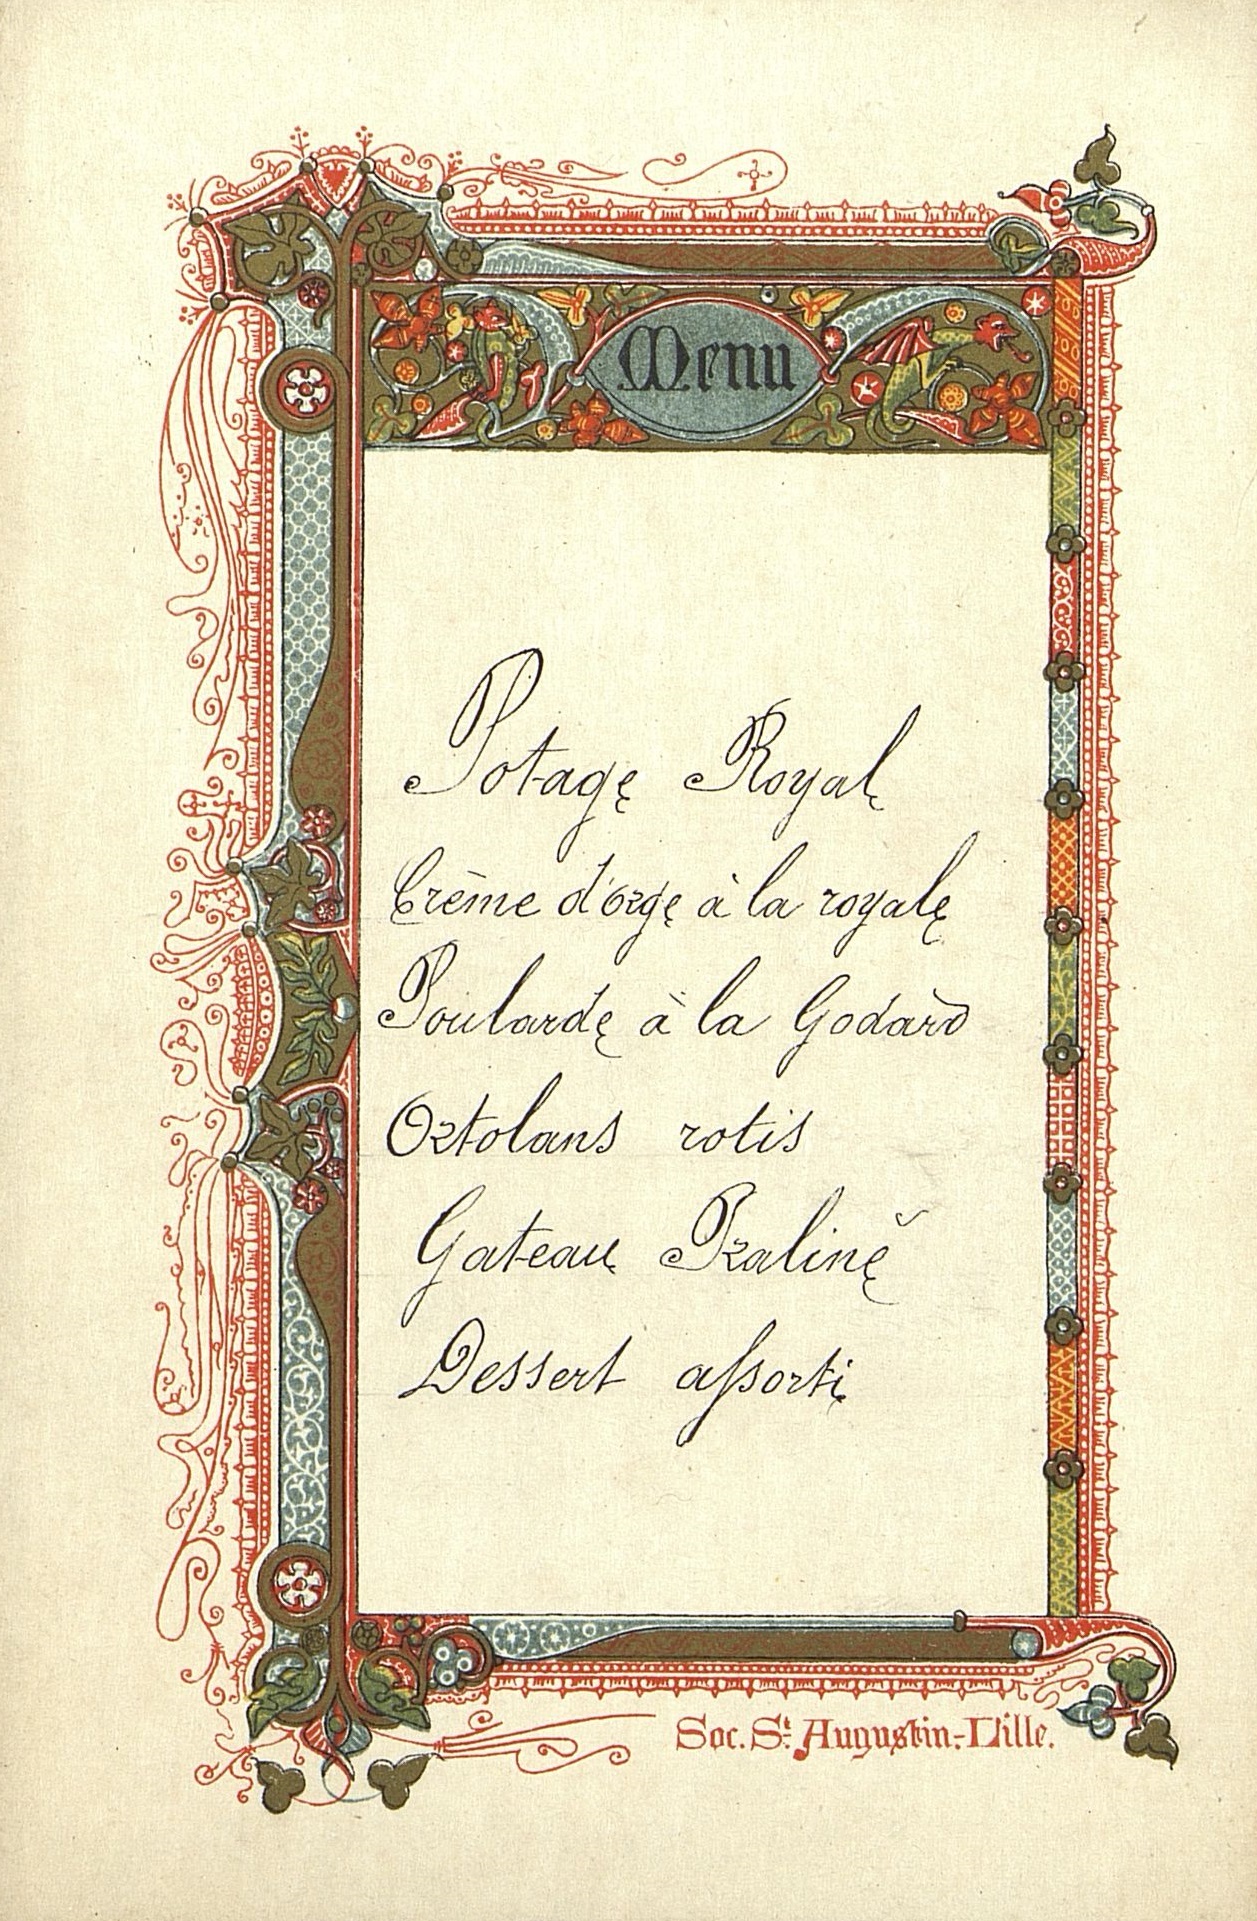 Menu
Potage Royal
Crème d'orge à la royale
Poularde à la Godard
Ortolans rotis
Gateau Praliné
Dessert assorti
Soc. St Augustin-Lille.